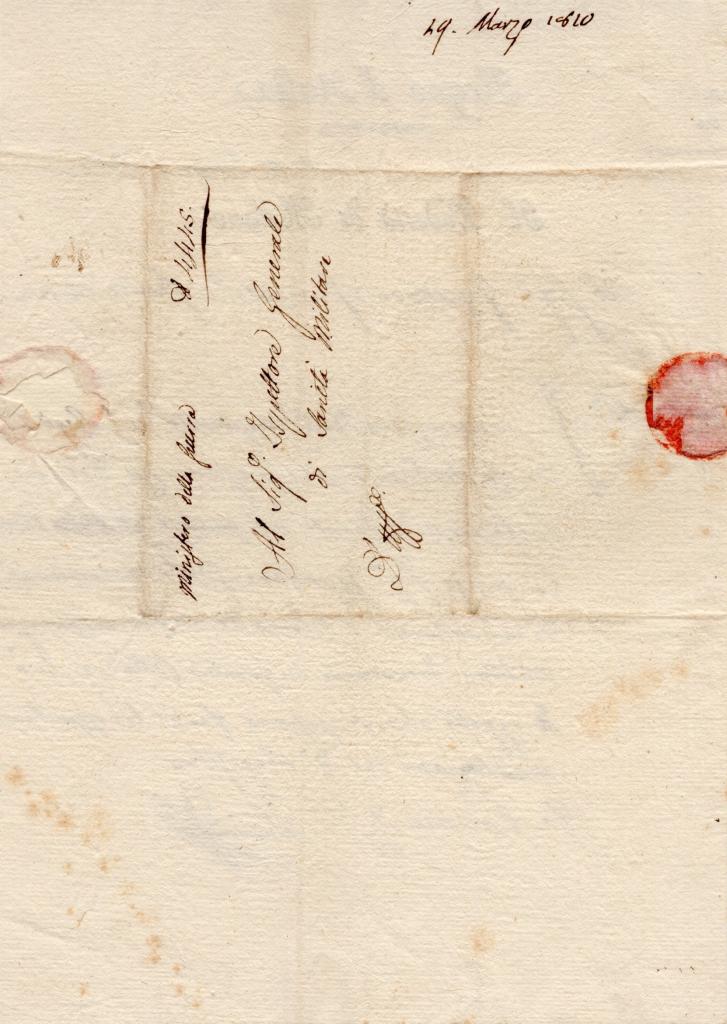 29. Marzo 1810
Ministero della Guerra
4415.
Al Sig.r Ispettore Generale
di Sanità Militare